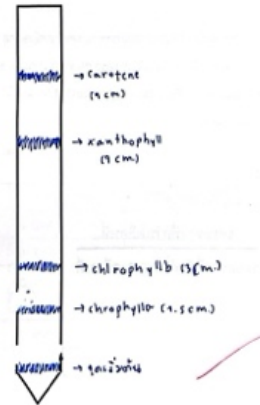 → carotene
→ xanthophyll
→ chlrophyll b (3cm.)
→ chrophylla (1.5cm.)
→ จุดเริ่มต้น